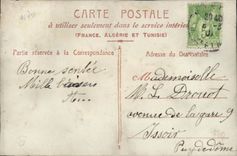 CARTE POSTALE
à utiliser seulement dans le service intérieur
(FRANCE, ALGÉRIE ET TUNISIE)
Partie réservée à la Correspondance
Adresse du Destinataire
Bonne santée
Mille baisers
Mademoiselle
M. L. Drouot
avenue de la gare 9
Issoir
Puy de dôme